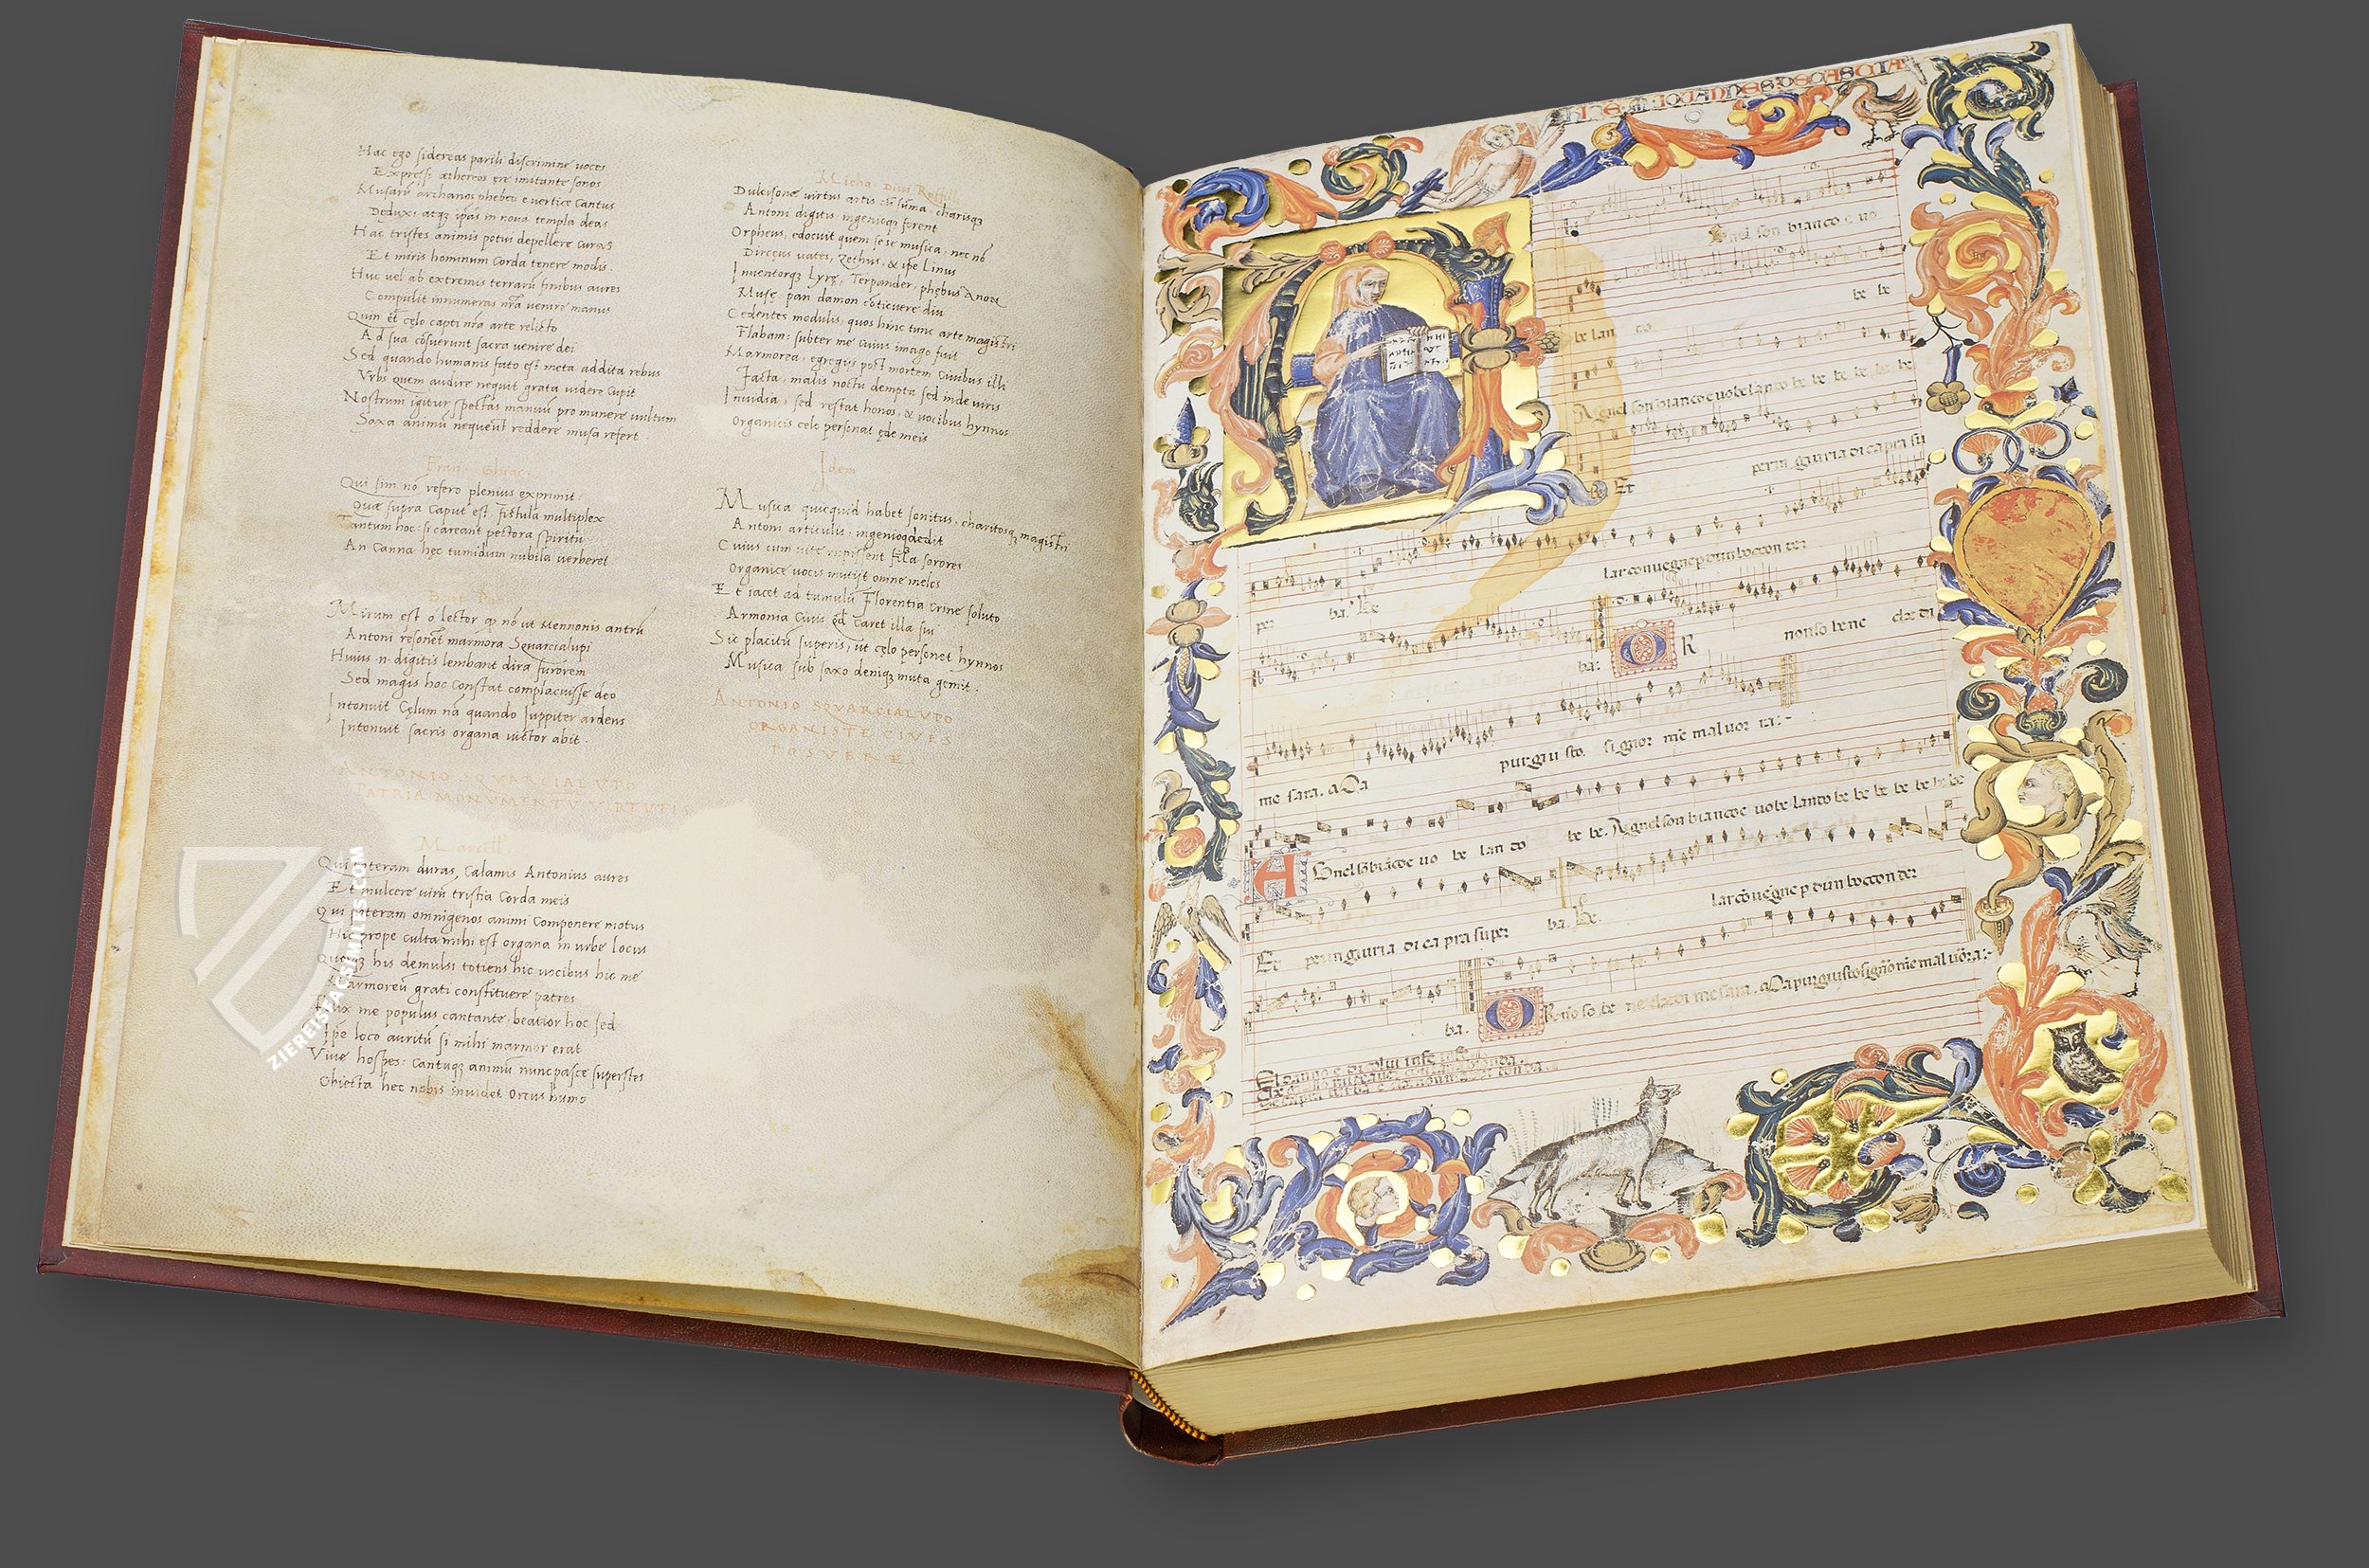 Hac ego sidereas parili discrimine uoces
Express: æthereos ęre imitante sonos
Musarū archanos phebeo e uertice cantus
Deduxi: atqȝ ipās in noua templa deas
Hac tristes animis potui depellere curas
Et miris hominum corda tenere modis.
Huc uel ab extremis terrarū finibus aures
Compulit innumeras nr̄a uenire manus
Quin et cęlo capti nr̄a arte relicto
Ad sua cōsuerunt sacra uenire dei
Sed quando humanis fato est meta addita rebus
Vrbs quem audire nequit grata uidere cupit
Nostrum igitur spectas manuū pro munere uultum
Saxa animū nequeūt reddere musa refert.
Fran. Ghiac.
Qui sim nō refero plenius exprimit:
Quæ supra caput est, fistula multiplex
Tantum hoc: si careant pectora spiritu
An canna hęc tumidum nubila uerberet
Mirum est o lector qꝫ nō ut Mennonis antrū
Antoni resonet marmora Squarcialupi
Huius n. digitis lembant dira furorem
Sed magis hoc constat complacuisse deo
Intonuit Cęlum nā quando Iuppiter ardens
Intonuit sacris organa uictor abit.
ANTONIO SQVARCIALVPO
PATRIA MONVMENTV VIRTVTIS
Marcell
Qui poteram duras, calamis Antonius aures
Et mulcere uirū tristia corda meis
Qui poteram omnigenos animi componere motus
Hic prope culta mihi est organa in urbe locus
Quosqȝ his demulsi totiens hic uocibus hic me
Marmoreū grati constituere patres
Dux me populus cantante, beatior hoc sed
Ip̄e loco auritū si mihi marmor erat
Viue hospes: cantuqȝ animū nunc pasce superstes
Obiecta hec nobis inuidet Orcus humo
Dulcisonę uirtus artis cū sūma, charisqȝ
Antoni digitis, ingenioqȝ forent
Orpheus, edocuit quem sese musica, nec nō
Dircęus uates, Zethus, & ip̄e Linus
Inuentorqȝ lyrę, Terpander, phębus Anon
Musę pan damon coticuere diu
Cedentes modulis, quos hinc tunc arte magistri
Flabam: subter me cuius imago fuit
Marmorea, egregijs post mortem ciuibus illi
Facta, malis noctu dempta sed inde uiris
Inuidia, sed restat honos, & uocibus hymnos
Organicis celo personat ęde meis
Idem
Musica quicquid habet sonitus, charitosqȝ magistri
Antoni articulis, ingenioqȝ dedit
Cuius cum uite rupissent fila sorores
Organice uocis mutijt omne melos
Et iacet ad tumulū Florentia crine soluto
Armonia cuius qd caret illa sui
Sic placitū superis, ut cęlo personet hymnos
Musica sub saxo deniqȝ muta gemit.
ANTONIO SQVARCIALVPO
ORGANISTE CIVES
POSVERE.
MAGISTER IOVANNES DECASCIA
Agnel son bianco e uo
be be
be lan co
Agnel son bianco e uo belanco be be be be be be
Et perin giuria di capra su
per ba. Be lar conuegne p dun boccon per
ba: OR non so bene che di
me sara. a Da pur giu sto. signor me mal uor ra:-
AGnel sō biāco e uo be lan co be be. Agnel son bianco e uo be lanco be be be be be be be
Et perin giuria di ca pra su per ba. Be. lar cō uegne p dun boccon per
ba. OR no so be ne che di me sara. a Da pur giusto signō me mal uōra:-
ZIEREIS FACSIMILES.COM